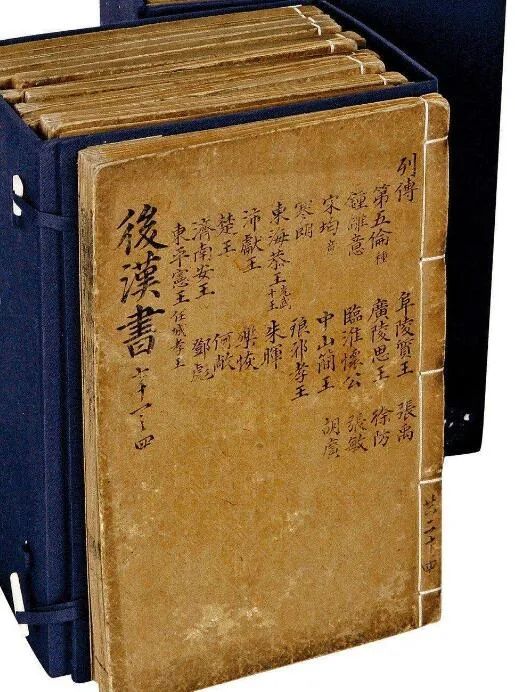 列傳 阜陵質王 張禹
第五倫種 廣陵思王 徐防
鍾離意 臨淮懷公 張敏
宋均意 中山簡王 胡廣
寒朗 琅邪孝王
東海恭王光武十王 朱暉
沛獻王 樂恢
楚王 何敞
濟南安王 鄧彪
東平憲王任城孝王
後漢書七十一之四
共二十四